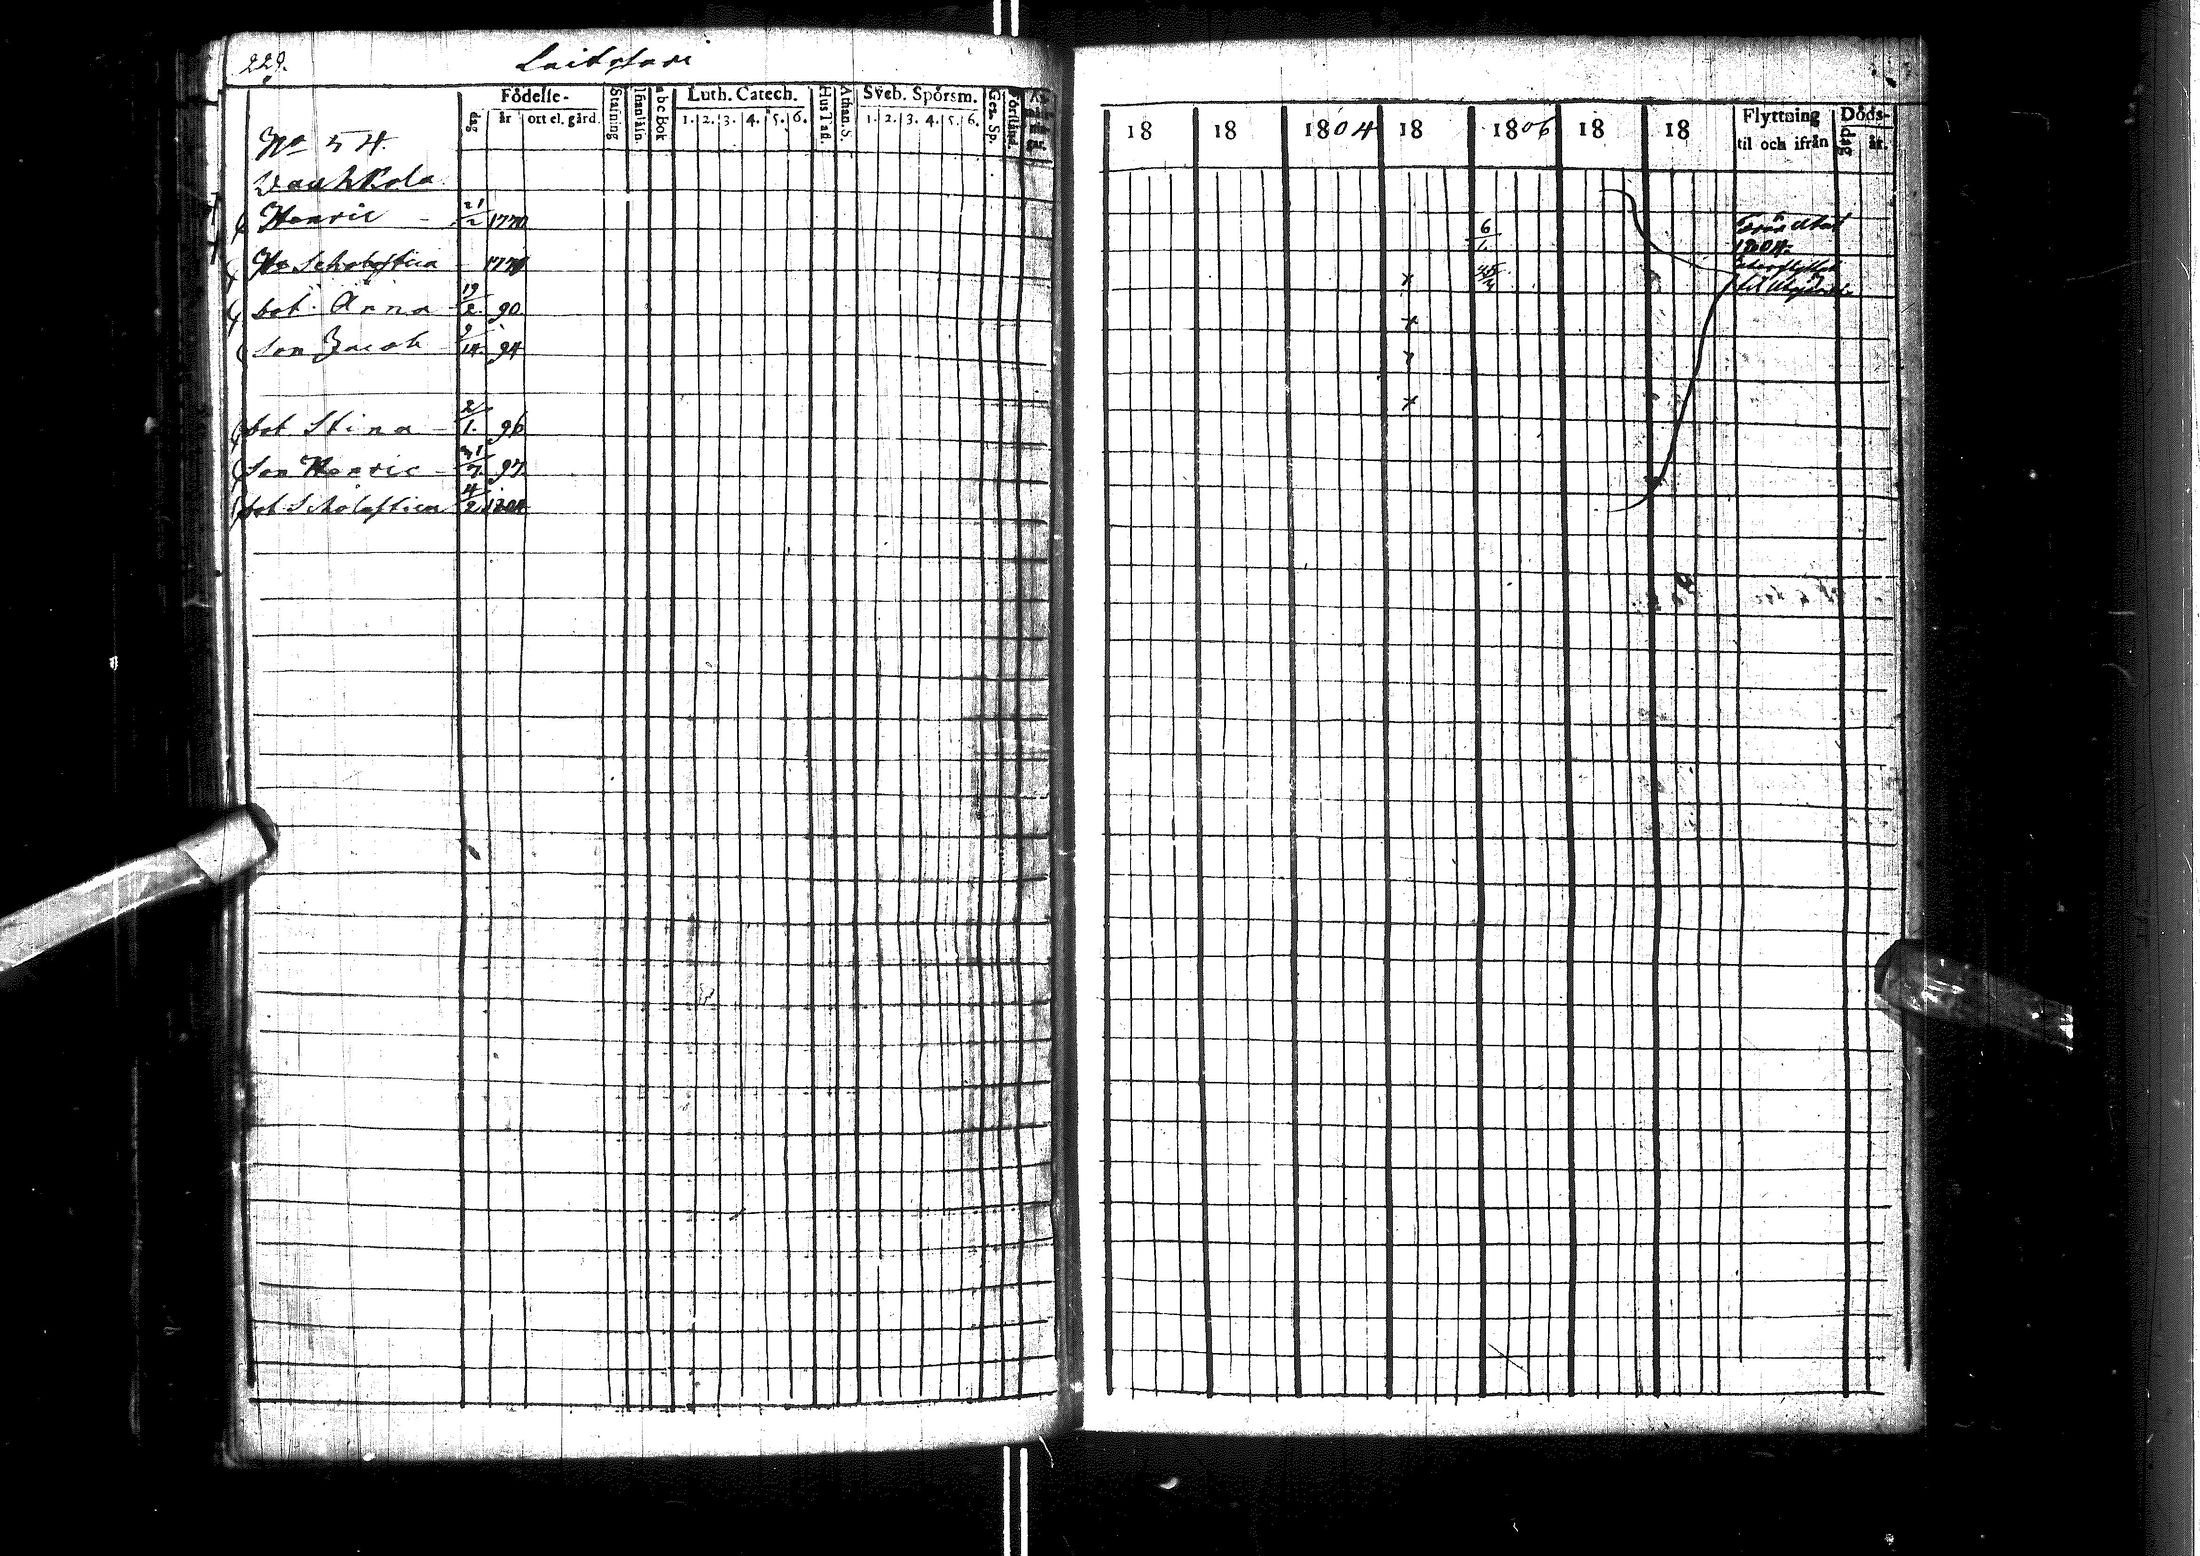 229.
Födelse-
dag
år
ort el. gård.
Stafning
Innanläsn
abc bok
Luth. Catech.
1. 2. 3. 4. 5. 6.
Hus Tafl.
Athan. S.
Sveb. Spörsm.
1. 2. 3. 4. 5. 6.
Gez. Sp.
Förstånd.
No 54.
Henric - 21/2 1770
Hu Scholastica - 177
dot. Anna 19/2. 90.
Son Jacob 9/14. 94
dot Stina - 2/1. 96
Son Henric - 31/7. 97
dot Scholastica 4/2 1804
18 18 1804 18 1806 18 18
Flyttning
til och ifrån
Döds-
dag
år.
6/1.
Från
1804.
til
x
x
x